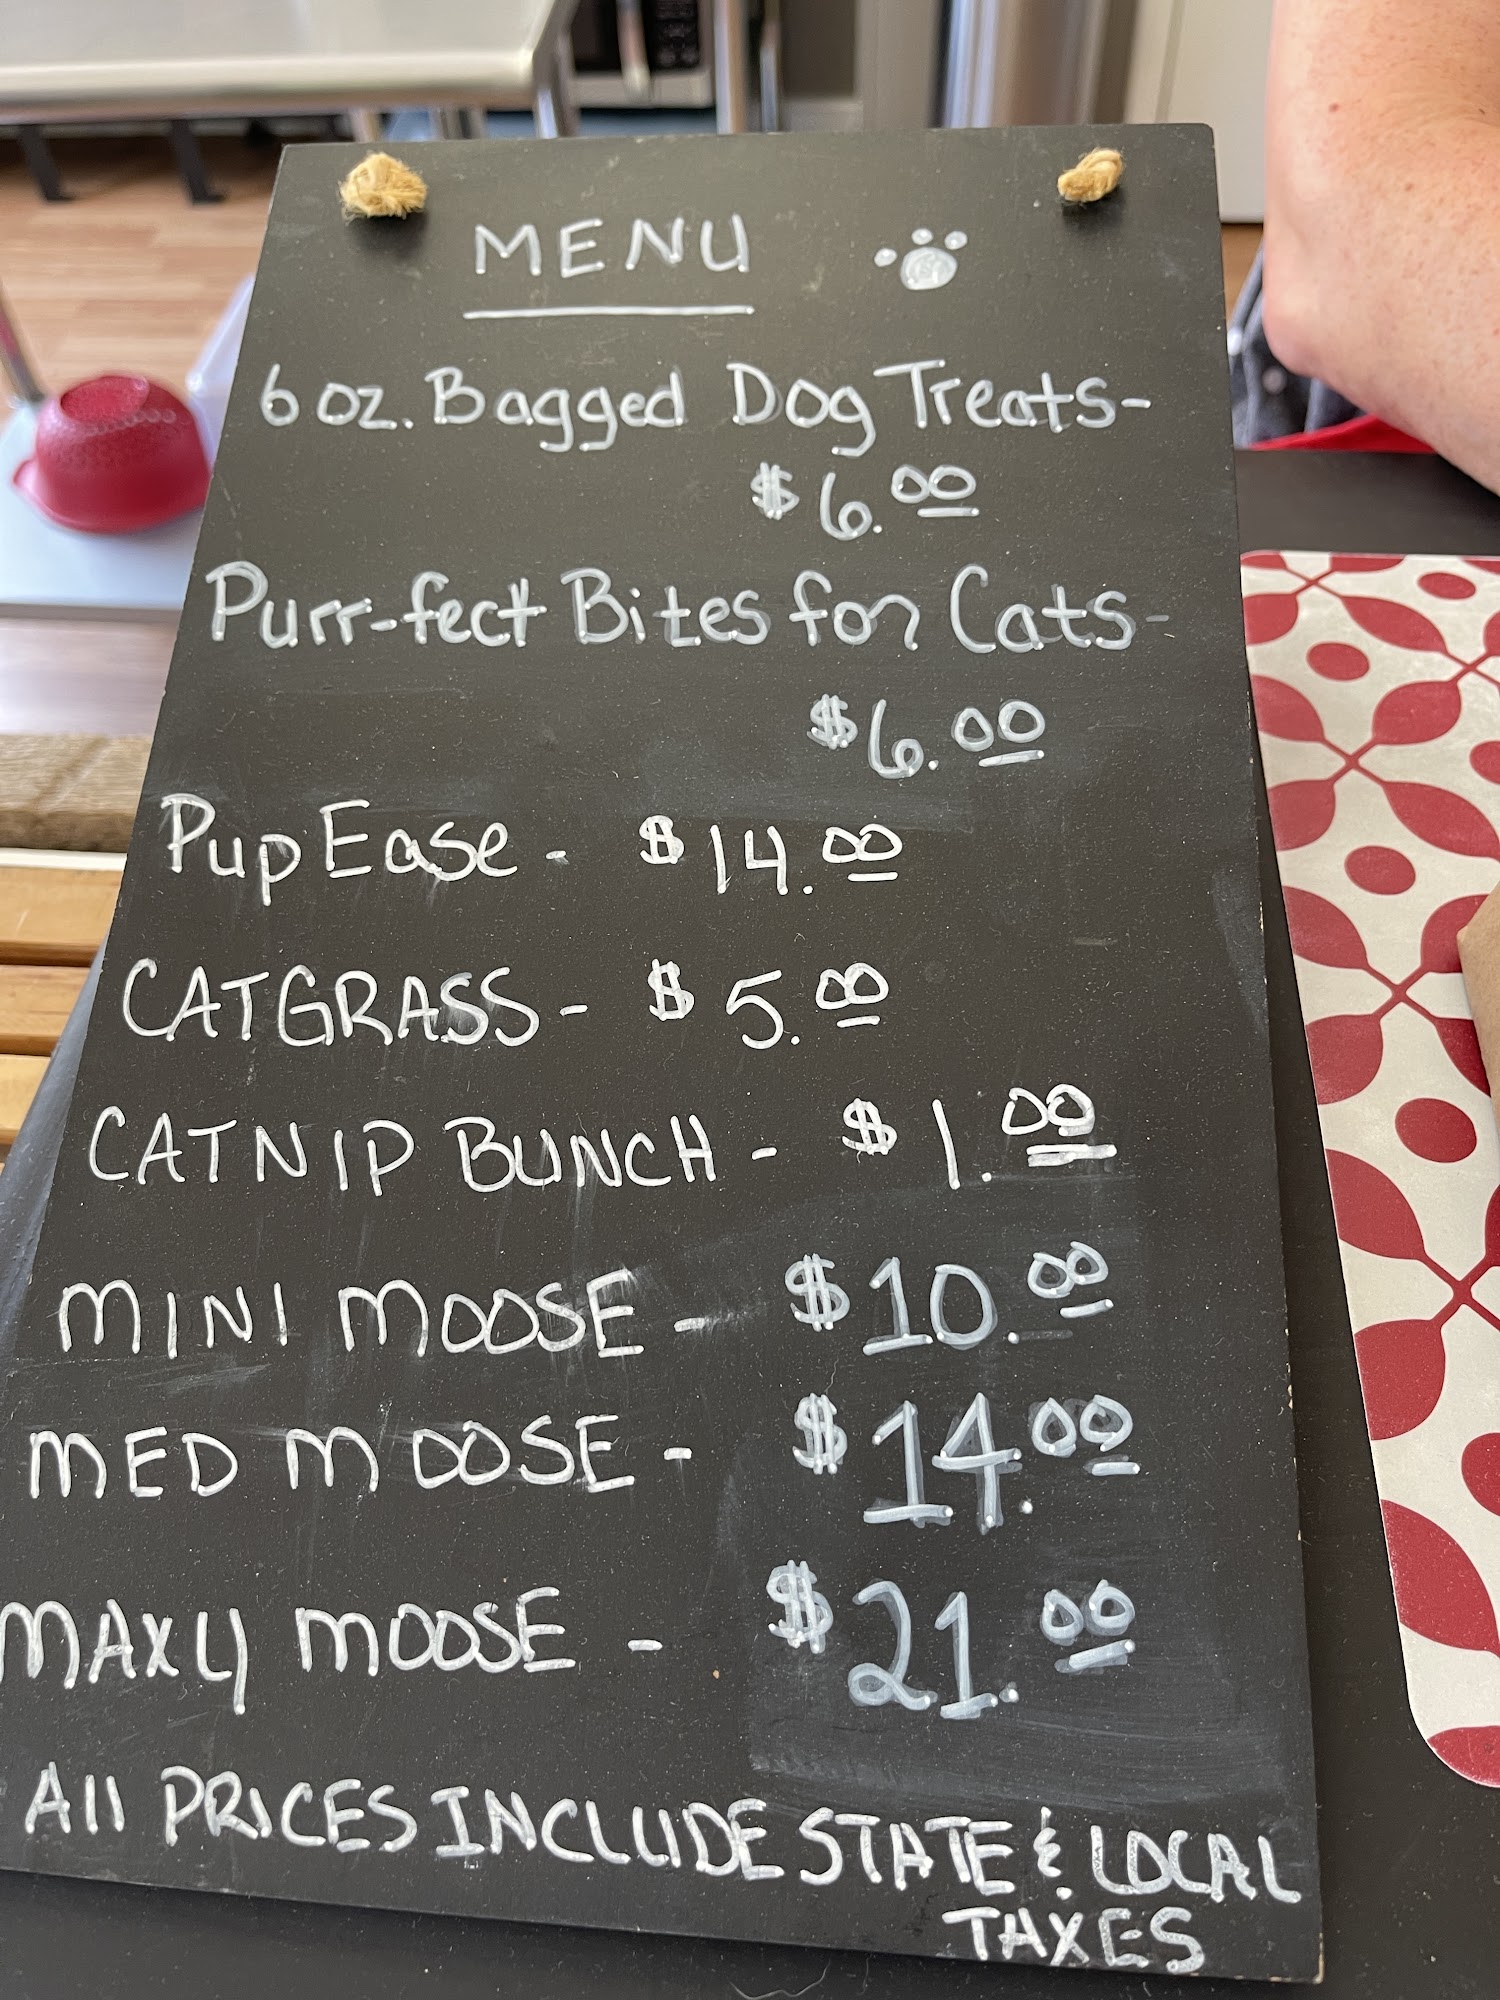 MENU
6 oz. Bagged Dog Treats-
$6.00
Purr-fect Bites for Cats-
$6.00
Pup Ease - $14.00
CATGRASS - $5.00
CATNIP BUNCH - $1.00
MINI MOOSE - $10.00
MED MOOSE - $14.00
MAXY MOOSE - $21.00
All PRICES INCLUDE STATE & LOCAL
TAXES